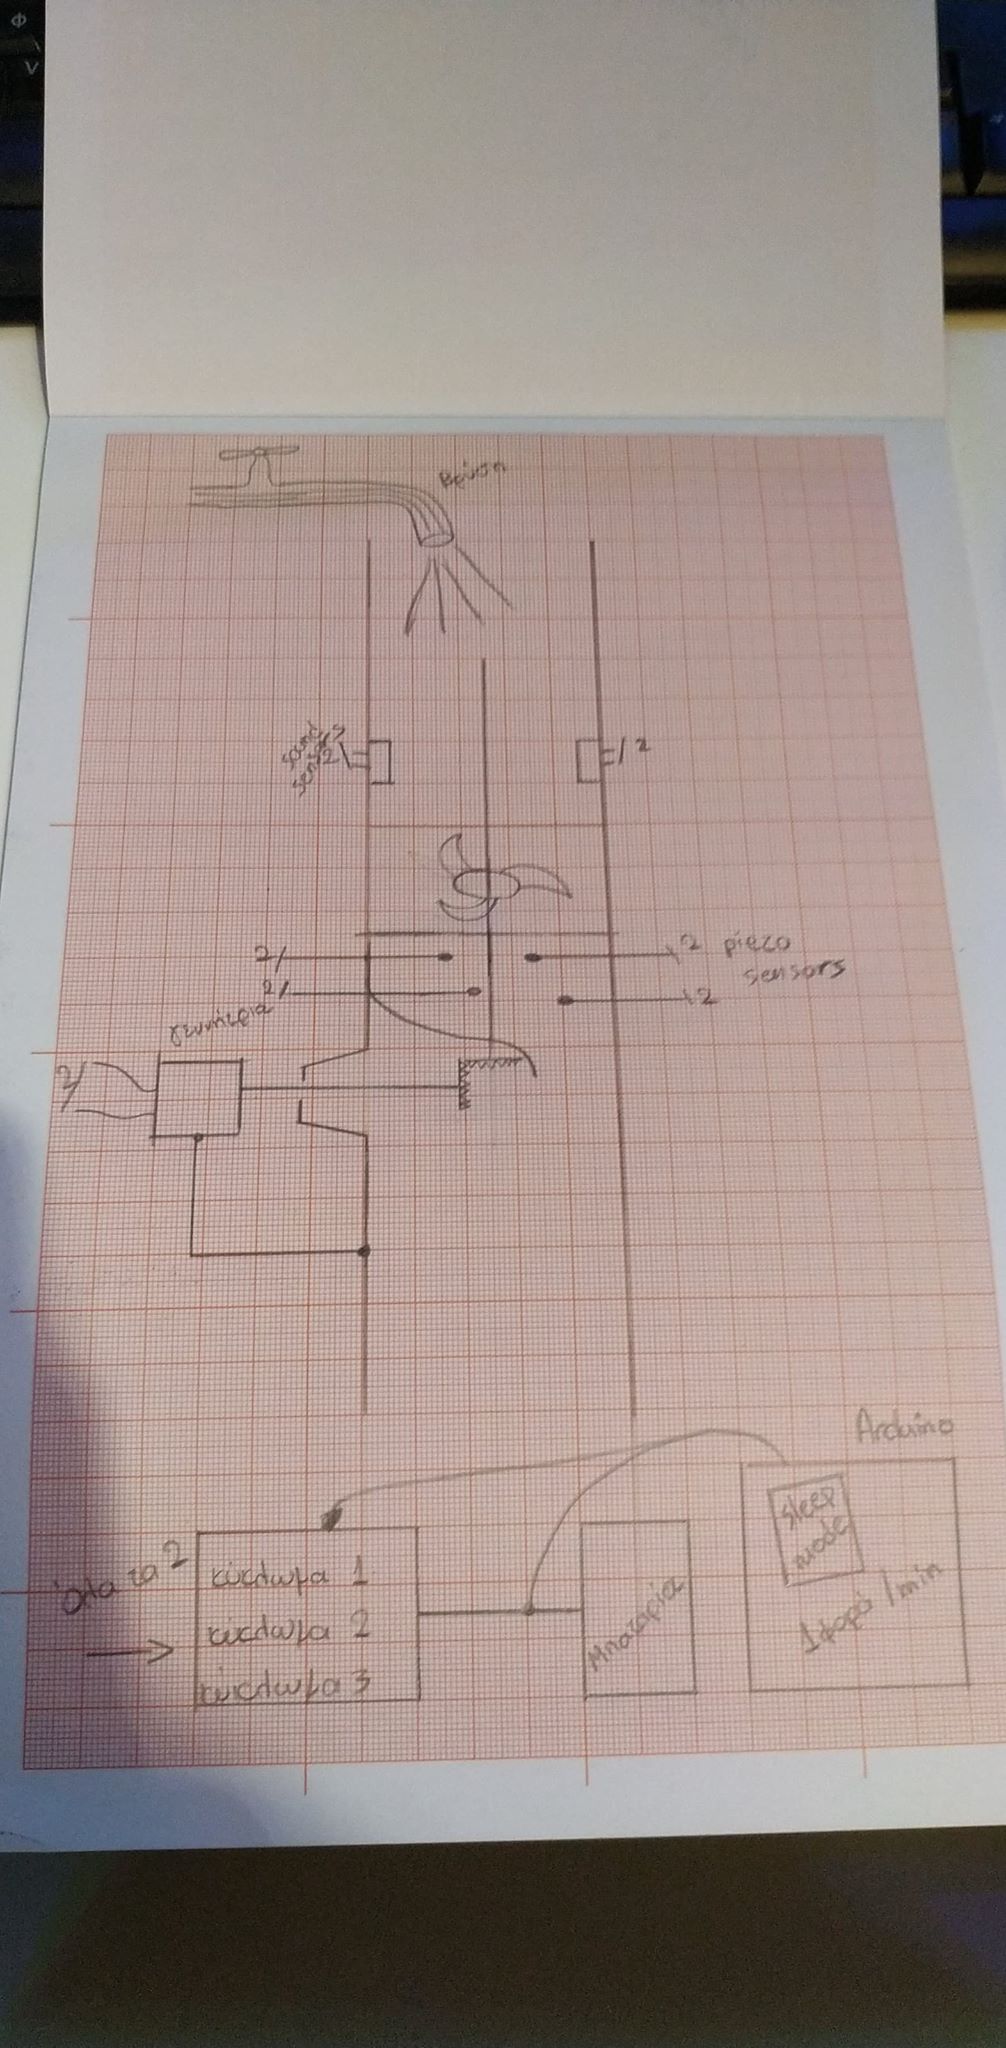 Βρύση
sound
sensors
2
2
2
2 pieco
sensors
2
2
γεννήτρια
2
Arduino
sleep
mode
1 φορά / min
όλα τα 2
κύκλωμα 1
κύκλωμα 2
κύκλωμα 3
Μπαταρία